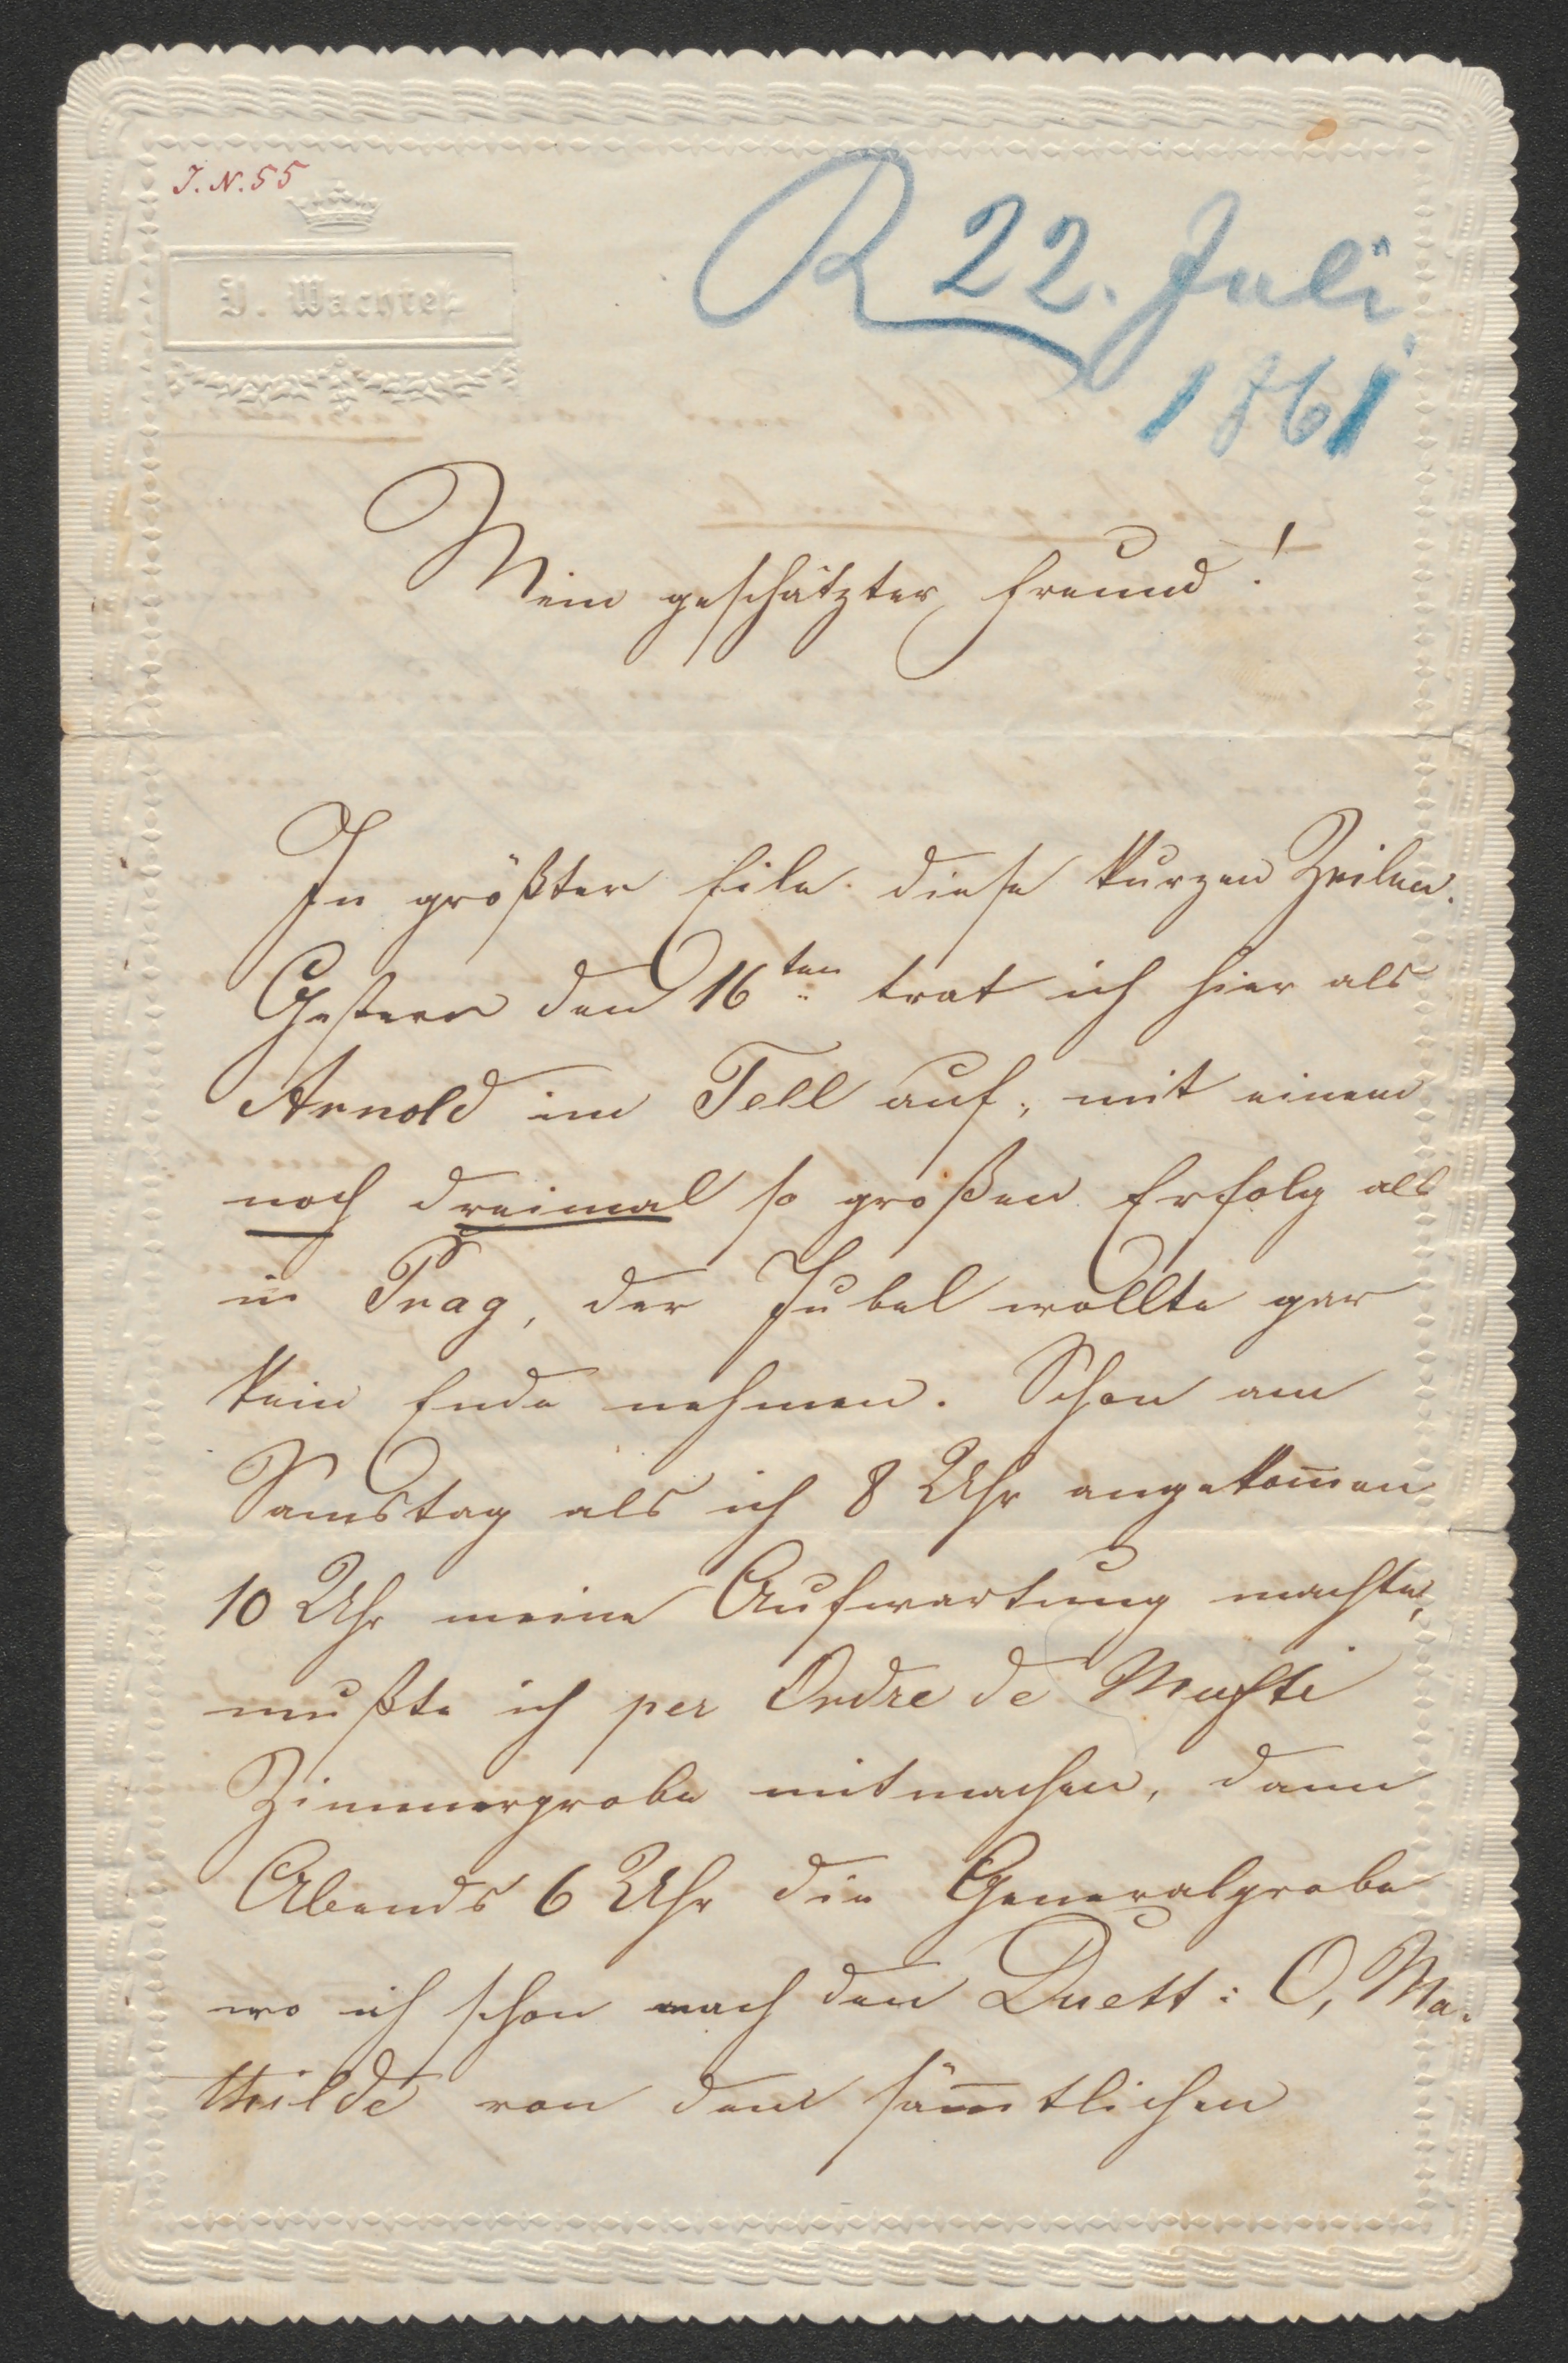 J. N. 55
R 22. Juli
1861
Wachtel
Mein geschätzter Freund!
In größter Eile diese kurzen Zeilen.
Gestern den 16ten trat ich hier als
Arnold im Tell auf, mit einem
noch dreimal so großen Erfolg als
in Prag, der Jubel wollte gar
kein Ende nehmen. Schon am
Samstag als ich 8 Uhr angekom̅en
10 Uhr meine Aufwartung machte,
mußte ich per Ordre de Mufti
Zimmerprobe mitmachen, dann
Abends 6 Uhr die Generalprobe
wo ich schon nach dem Duett: O, Ma-
thilde von den säm̅tlichen